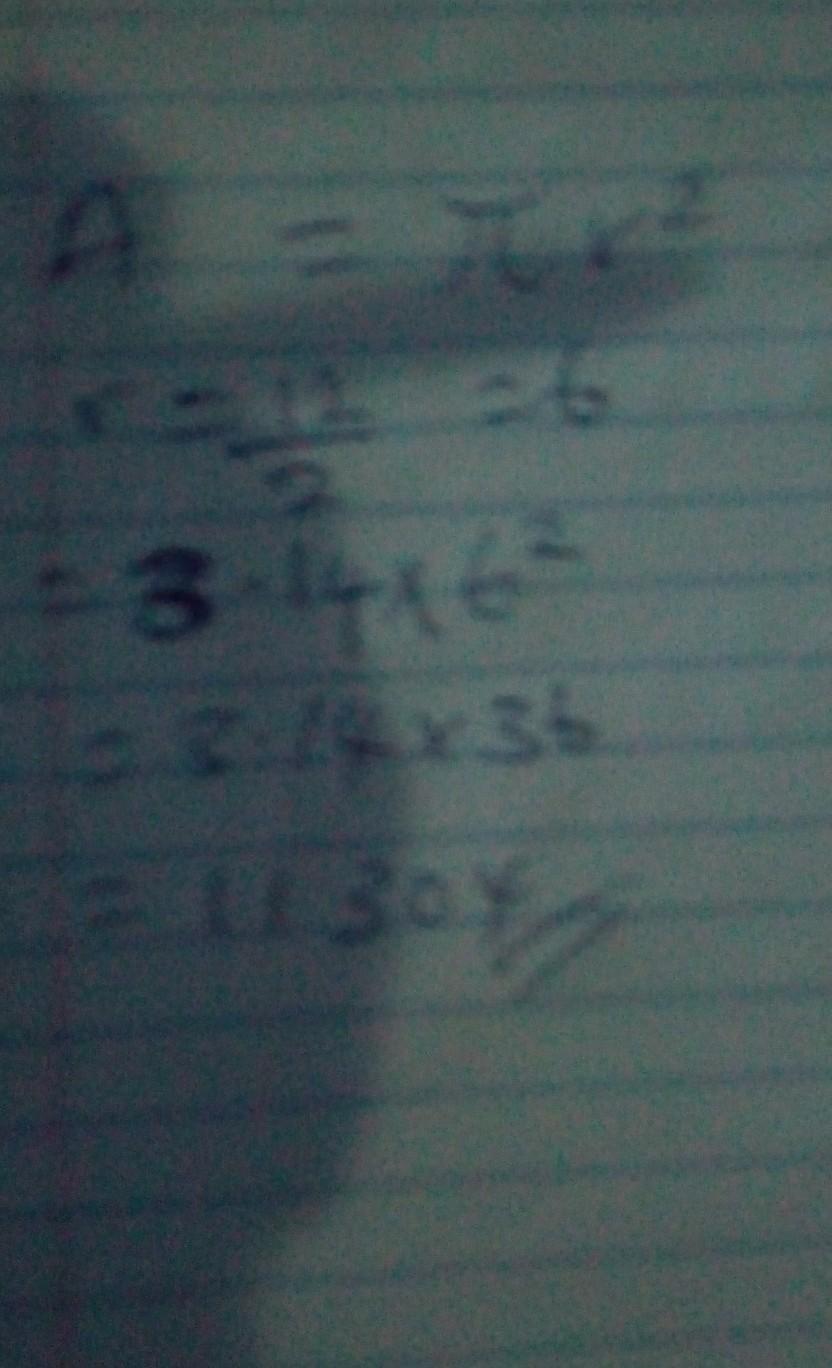 A = πr²
r = 12/2 = 6
= 3.14 x 6²
= 3.14 x 36
= 11304